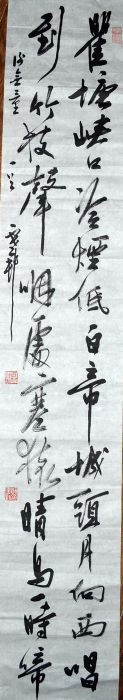 瞿塘峽口冷煙低白帝城頭月向西唱
到竹枝聲咽處寒猿晴鳥一時啼